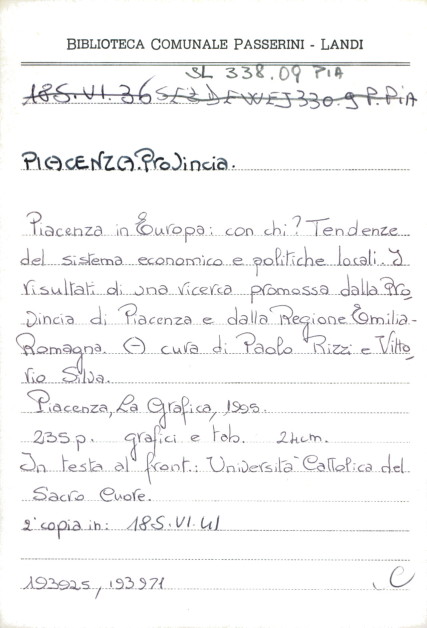 BIBLIOTECA COMUNALE PASSERINI - LANDI
SL 338.09 PIA
18.S.VI.36 SEZ DEWEJ 330.9 P. PIA
PIACENZA. Provincia.
Piacenza in Europa: con chi? Tendenze
del sistema economico e politiche locali. I
risultati di una ricerca promossa dalla Pro
vincia di Piacenza e dalla Regione Emilia-
Romagna. A cura di Paolo Rizzi e Vitto
rio Silva.
Piacenza, La Grafica, 1995.
235 p. grafici e tab. 24cm.
In testa al front.: Università Cattolica del
Sacro Cuore.
2ª copia in: 18.S.VI.41
193925, 193971 C